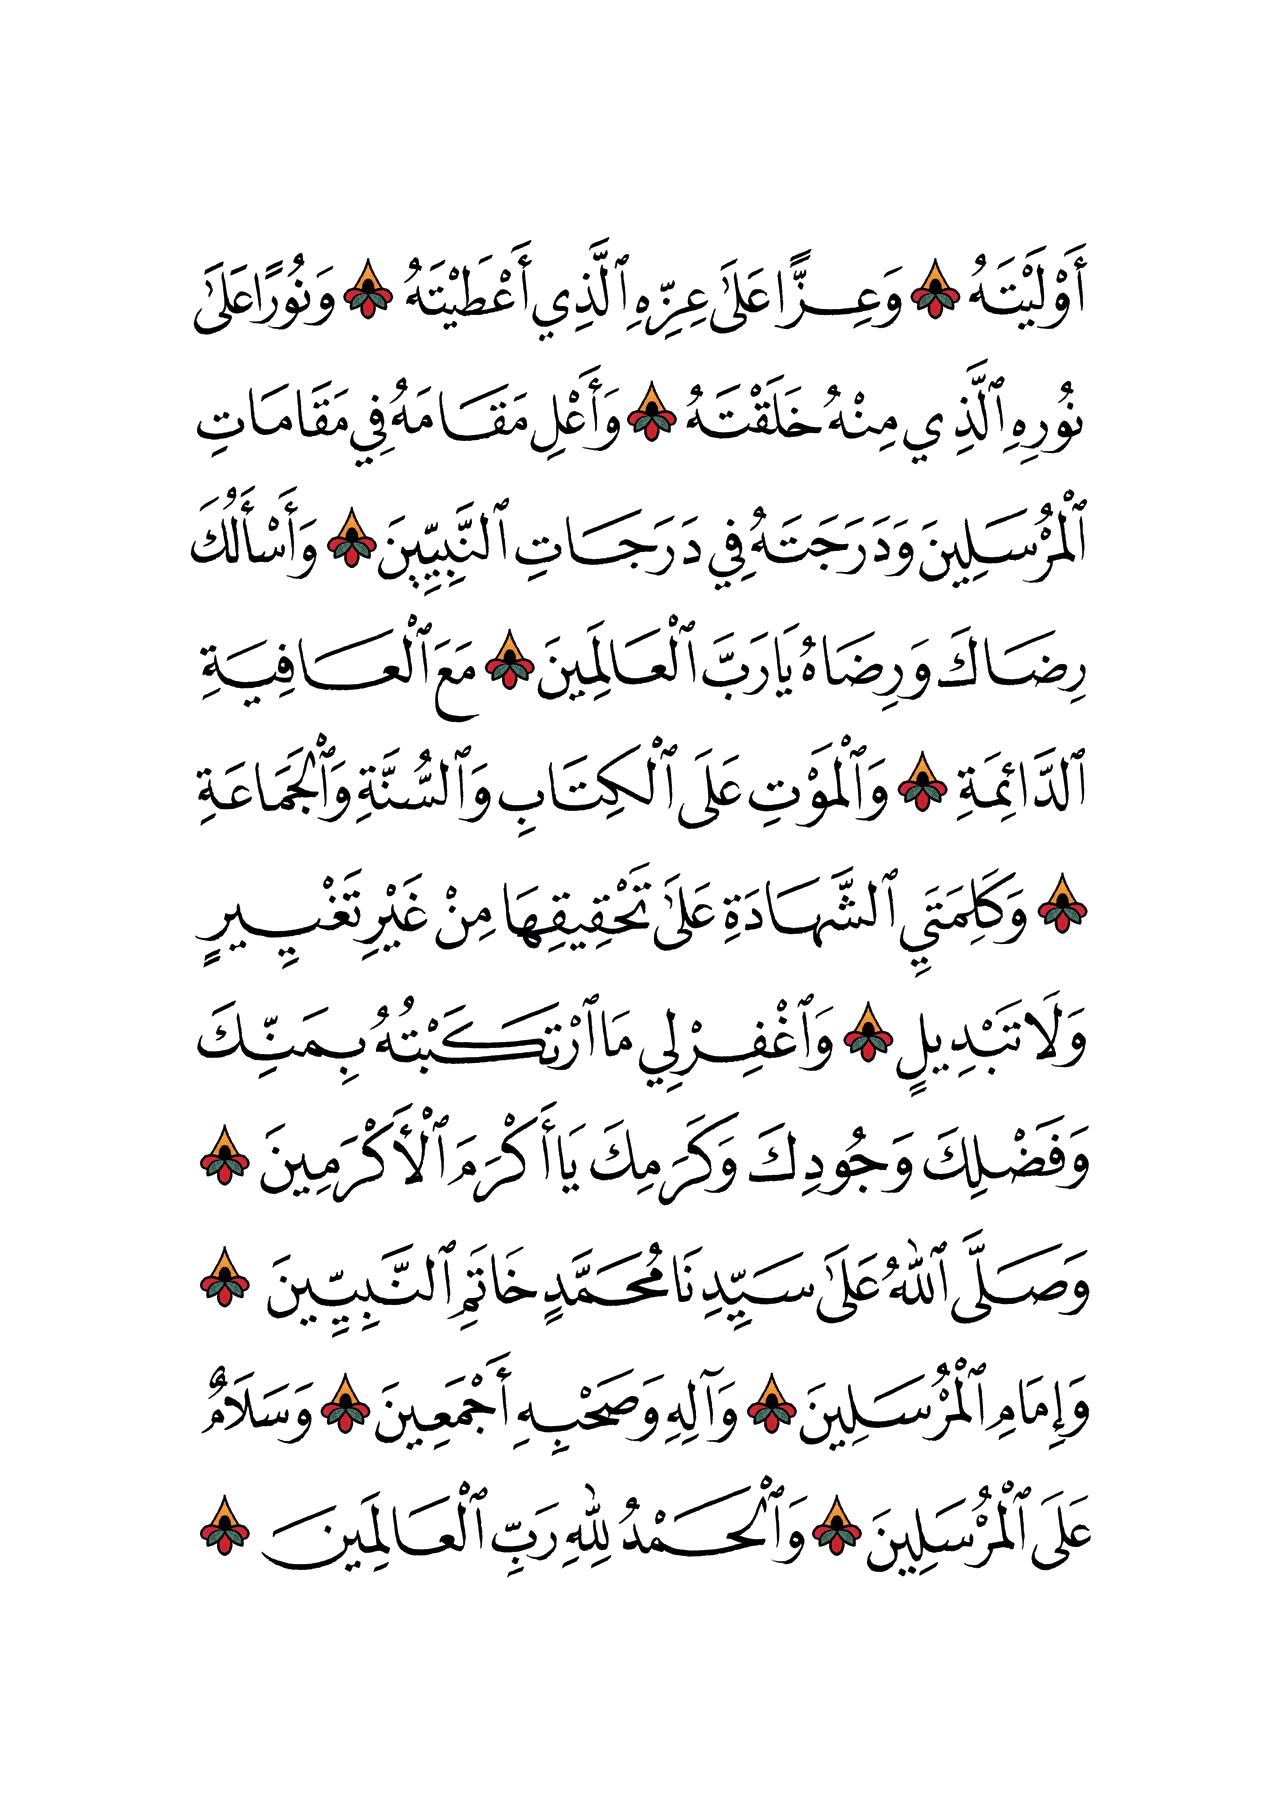 أَوْلَيْتَهُ وَعِزًّا عَلَىٰ عِزِّهِ ٱلَّذِي أَعْطَيْتَهُ وَنُورًا عَلَىٰ
نُورِهِ ٱلَّذِي مِنْهُ خَلَقْتَهُ وَأَعْلِ مَقَامَهُ فِي مَقَامَاتِ
ٱلْمُرْسَلِينَ وَدَرَجَتَهُ فِي دَرَجَاتِ ٱلنَّبِيِّينَ وَأَسْأَلُكَ
رِضَاكَ وَرِضَاهُ يَا رَبَّ ٱلْعَالَمِينَ مَعَ ٱلْعَافِيَةِ
ٱلدَّائِمَةِ وَٱلْمَوْتِ عَلَى ٱلْكِتَابِ وَٱلسُّنَّةِ وَٱلْجَمَاعَةِ
وَكَلِمَتَيِ ٱلشَّهَادَةِ عَلَىٰ تَحْقِيقِهَا مِنْ غَيْرِ تَغْيِيرٍ
وَلَا تَبْدِيلٍ وَٱغْفِرْ لِي مَا ٱرْتَكَبْتُهُ بِمَنِّكَ
وَفَضْلِكَ وَجُودِكَ وَكَرَمِكَ يَا أَكْرَمَ ٱلْأَكْرَمِينَ
وَصَلَّى ٱللَّهُ عَلَىٰ سَيِّدِنَا مُحَمَّدٍ خَاتَمِ ٱلنَّبِيِّينَ
وَإِمَامِ ٱلْمُرْسَلِينَ وَآلِهِ وَصَحْبِهِ أَجْمَعِينَ وَسَلَامٌ
عَلَى ٱلْمُرْسَلِينَ وَٱلْحَمْدُ لِلَّهِ رَبِّ ٱلْعَالَمِينَ